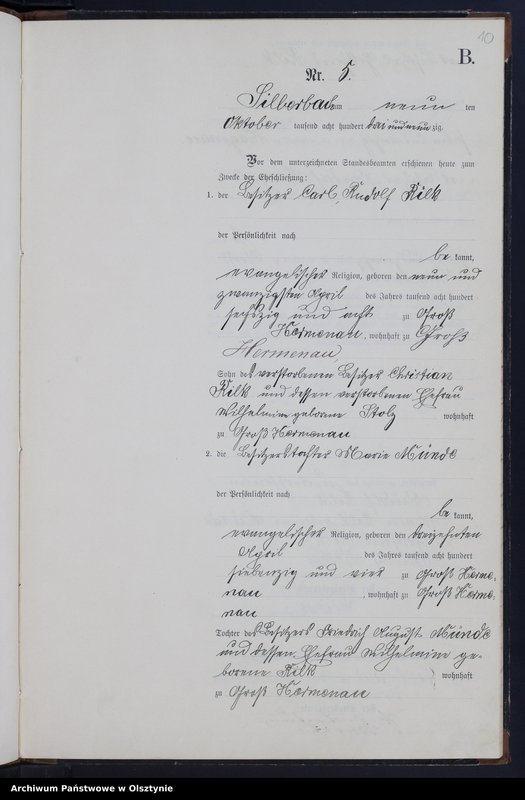 10
B.
Nr. 5.
Silberbach am neun ten
Oktober tausend acht hundert drei und neun zig.
Vor dem unterzeichneten Standesbeamten erschienen heute zum
Zwecke der Eheschließung:
1. der Besitzer Carl, Rudolf Kilk
der Persönlichkeit nach
be kannt,
evangelischer Religion, geboren den neun und
zwanzigsten April des Jahres tausend acht hundert
sechszig und acht zu Groß
Hermenau, wohnhaft zu Groß
Hermenau
Sohn des verstorbenen Besitzer Christian
Kilk und dessen verstorbenen Ehefrau
Wilhelmine geborene Stolz wohnhaft
zu Groß Hermenau
2. die Besitzerstochter Marie Münde
der Persönlichkeit nach
be kannt,
evangelischer Religion, geboren den dreizehnten
April des Jahres tausend acht hundert
siebenzig und vier zu Groß Herme-
nau, wohnhaft zu Groß Herme-
nau
Tochter des Besitzers Friedrich August Münde
und dessen Ehefrau Wilhelmine ge-
borene Kilk wohnhaft
zu Groß Hermenau
Archiwum Państwowe w Olsztynie